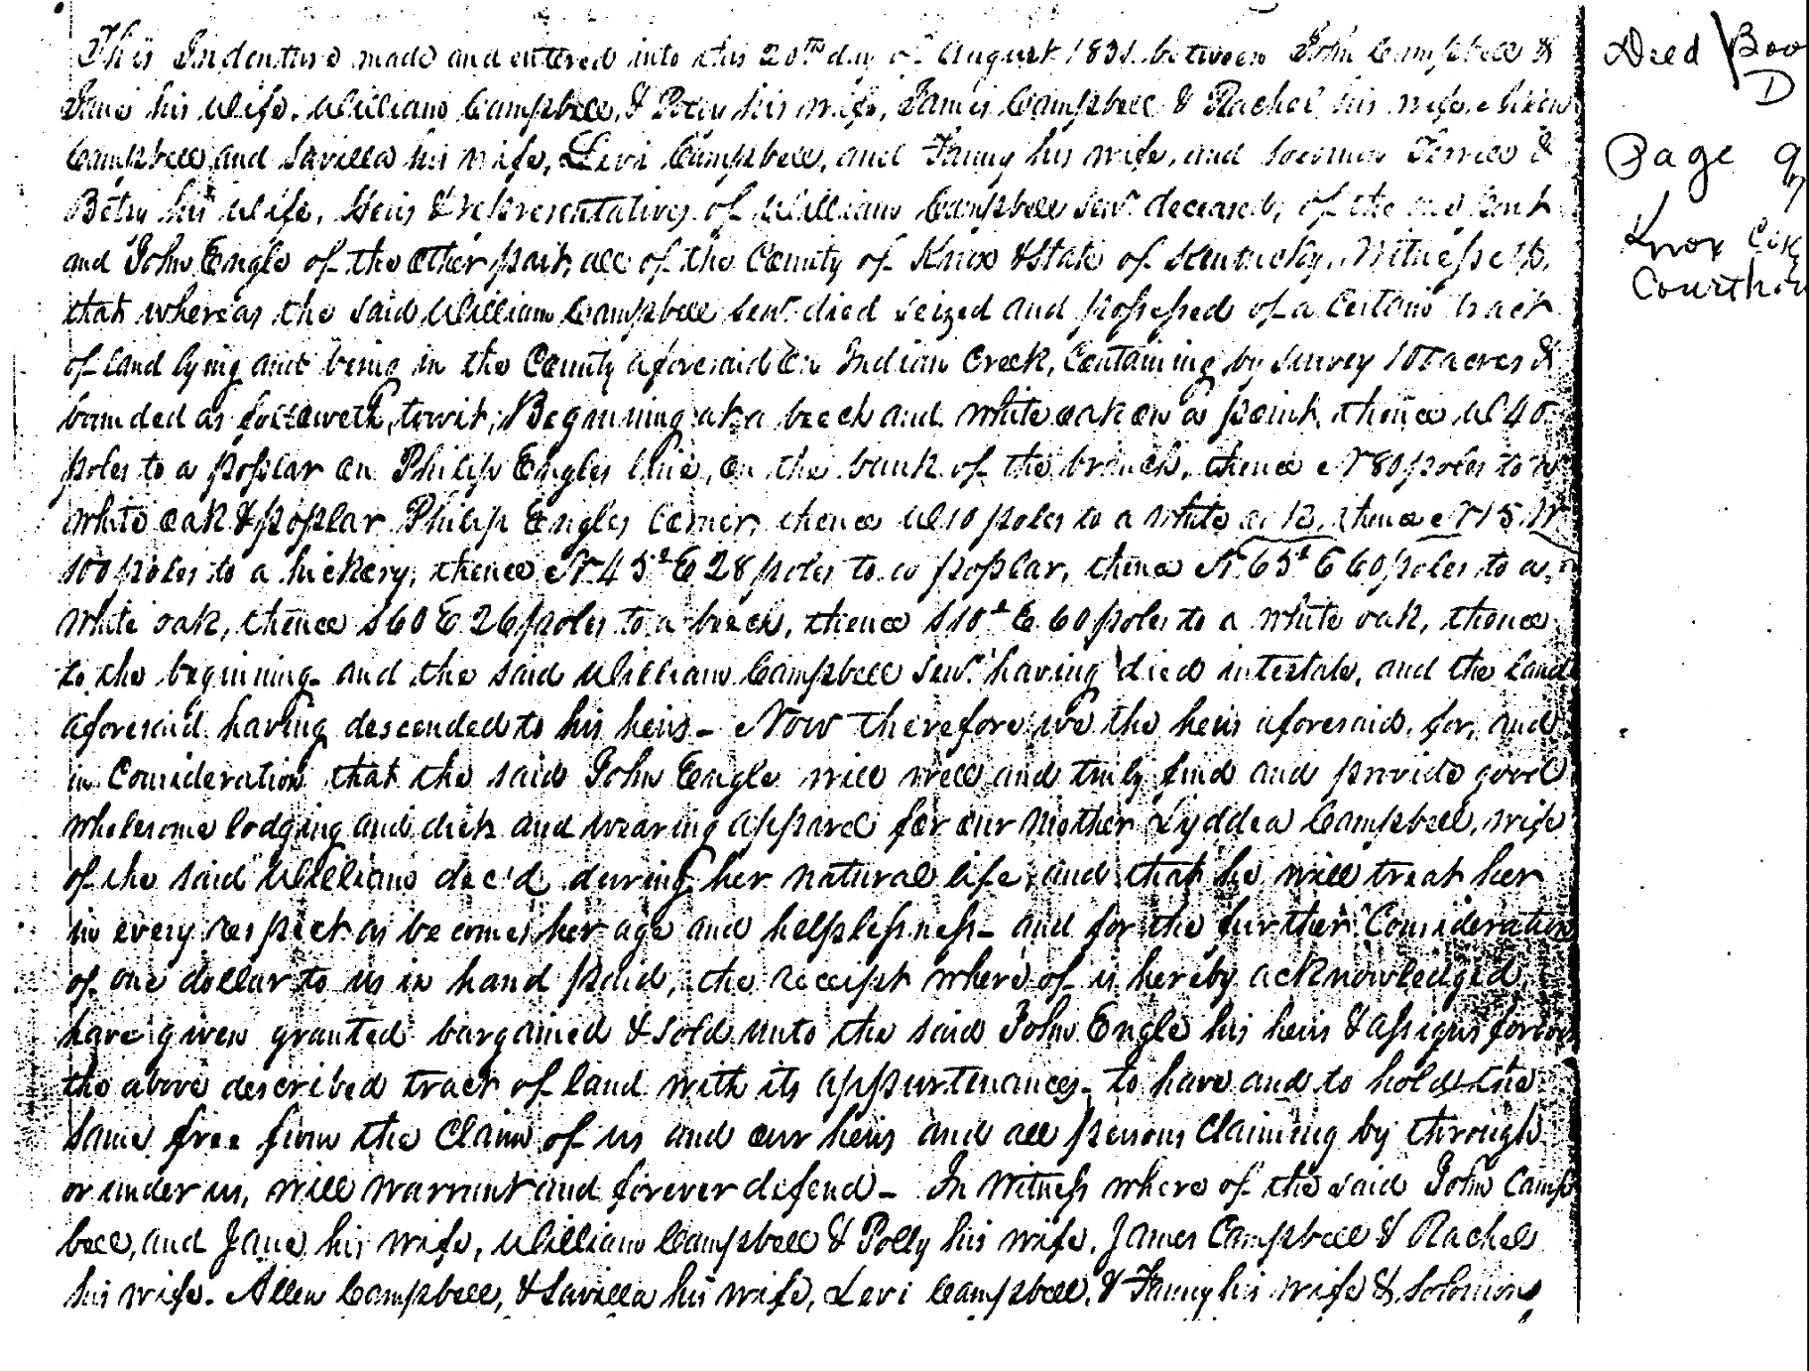 This Indenture made and entered into this 20th day of August 1831 between John Campbell &
Jane his Wife, William Campbell, & Polly his wife, James Campbell & Rachel his wife, Allen
Campbell and Savilla his wife, Levi Campbell, and Fanny his wife, and Solomon &
Betsy his Wife, Heirs & representatives of William Campbell Senr. deceased, of the one part
and John Engle of the other part, all of the County of Knox & State of Kentucky. Witnesseth,
that whereas the said William Campbell Senr. died seized and possessed of a Certain tract
of land lying and being in the County aforesaid on Indian Creek, Containing by survey acres &
bounded as followeth, towit; Beginning at a beech and white oak on a point, thence W 40
poles to a poplar on Philip Engles line, on the bank of the branch, thence N 80 poles to a
white oak & poplar Philip Engles Corner, thence W 10 poles to a white oak, thence N 15 W
100 poles to a hickery, thence N. 45 E 28 poles to a poplar, thence N. 65 E 60 poles to a
white oak, thence S 60 E 26 poles to a beech, thence S 10 E. 60 poles to a white oak, thence
to the beginning - and the said William Campbell Senr. having died intestate, and the land
aforesaid having descended to his heirs - Now therefore we the heirs aforesaid, for, and
in Consideration that the said John Engle will well and truly find and provide good
wholesome lodging and diet and wearing apparel for our Mother Lyddea Campbell, wife
of the said William dec'd during her natural life, and that he will treat her
in every respect as becomes her age and helplessness - and for the further Consideration
of one dollar to us in hand paid, the receipt where of is hereby acknowledged,
have given granted bargained & sold unto the said John Engle his heirs & assigns forever
the above described tract of land with its appurtenances - to have and to hold the
same free from the Claim of us and our heirs and all persons Claiming by through
or under us, will warrant and forever defend - In Witness where of the said John Camp
bell, and Jane his wife, William Campbell & Polly his wife, James Campbell & Rachel
his wife. Allen Campbell, & Savilla his wife, Levi Campbell, & Fanny his wife & Solomon
Deed Boo
D
Page
Knox
Courtho